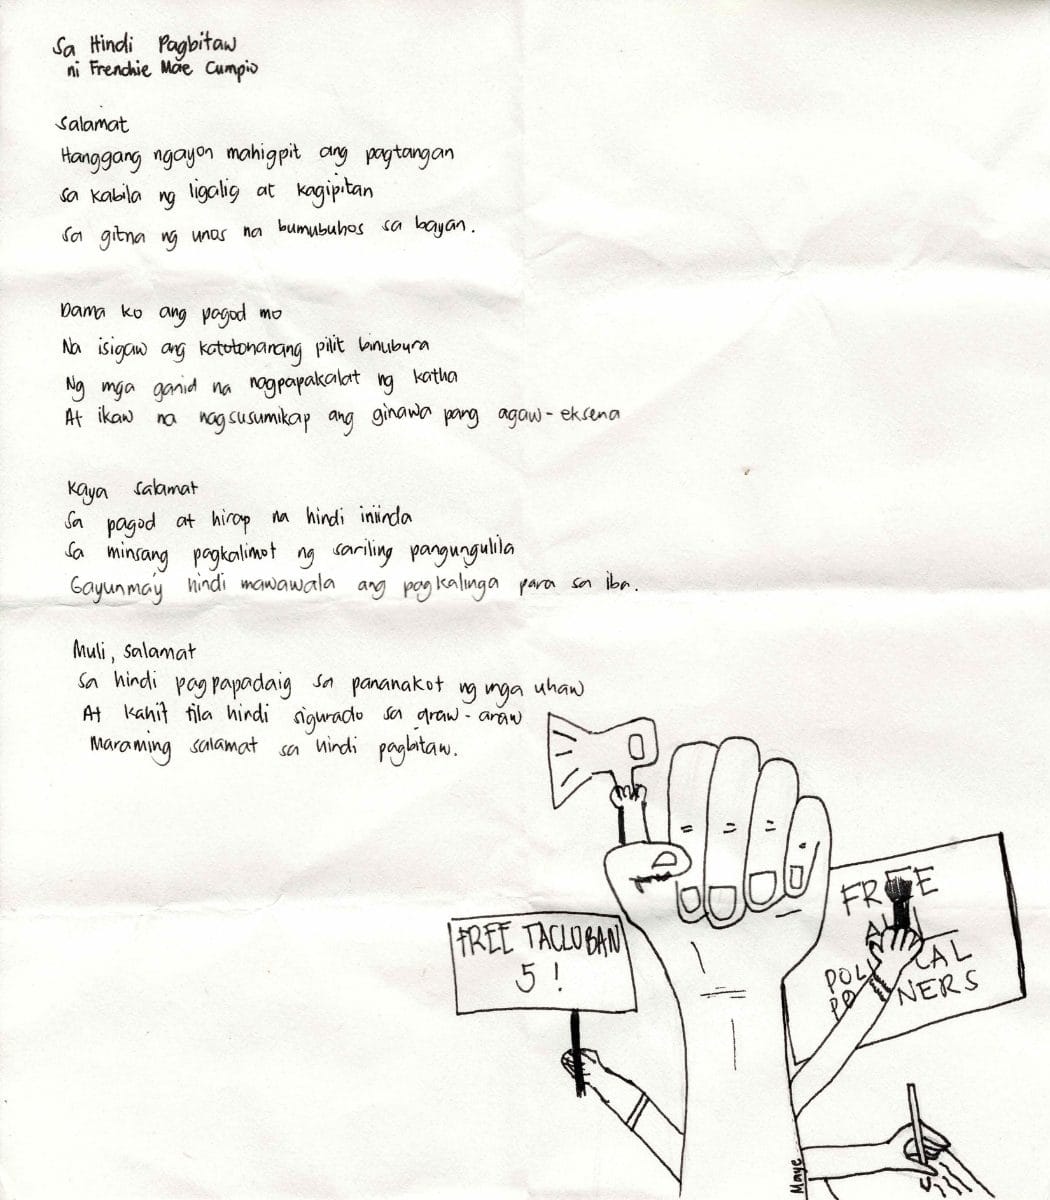 Sa Hindi Pagbitaw
ni Frenchie Mae Cumpio
Salamat
Hanggang ngayon mahigpit ang pagtangan
sa kabila ng ligalig at kagipitan
sa gitna ng unos na bumubuhos sa bayan.
Dama ko ang pagod mo
Na isigaw ang katotohanang pilit binubura
Ng mga ganid na nagpapakalat ng katha
At ikaw na nagsusumikap ang ginawa pang agaw-eksena
Kaya salamat
Sa pagod at hirap na hindi iniinda
Sa minsang pagkalimot ng sariling pangungulila
Gayunma'y hindi mawawala ang pagkalinga para sa iba.
Muli, salamat
Sa hindi pagpapadaig sa pananakot ng mga uhaw
At kahit tila hindi sigurado sa araw-araw
Maraming salamat sa hindi pagbitaw.
FREE TACLOBAN
5!
FREE
POL CAL
NERS
Maye